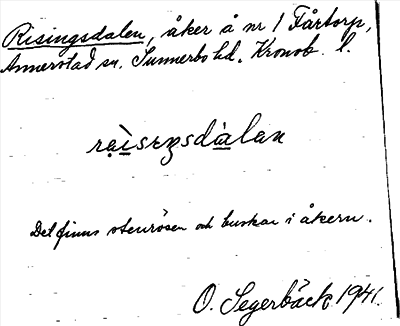 Risingsdalen, åker å nr 1 Fårtorp,
Annerstad sn. Sunnerbo hd. Kronob. l.
ra̤i̤seŋsda̤lan
Det finns stenrösen och buskar i åkern.
O. Segerbäck 1941.